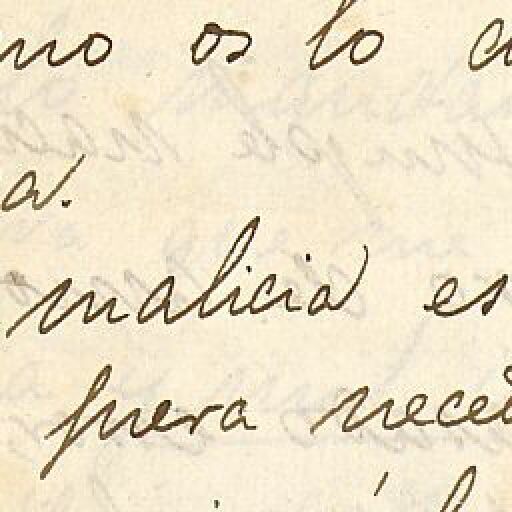 no os lo
a.
malicia es
fuera nece